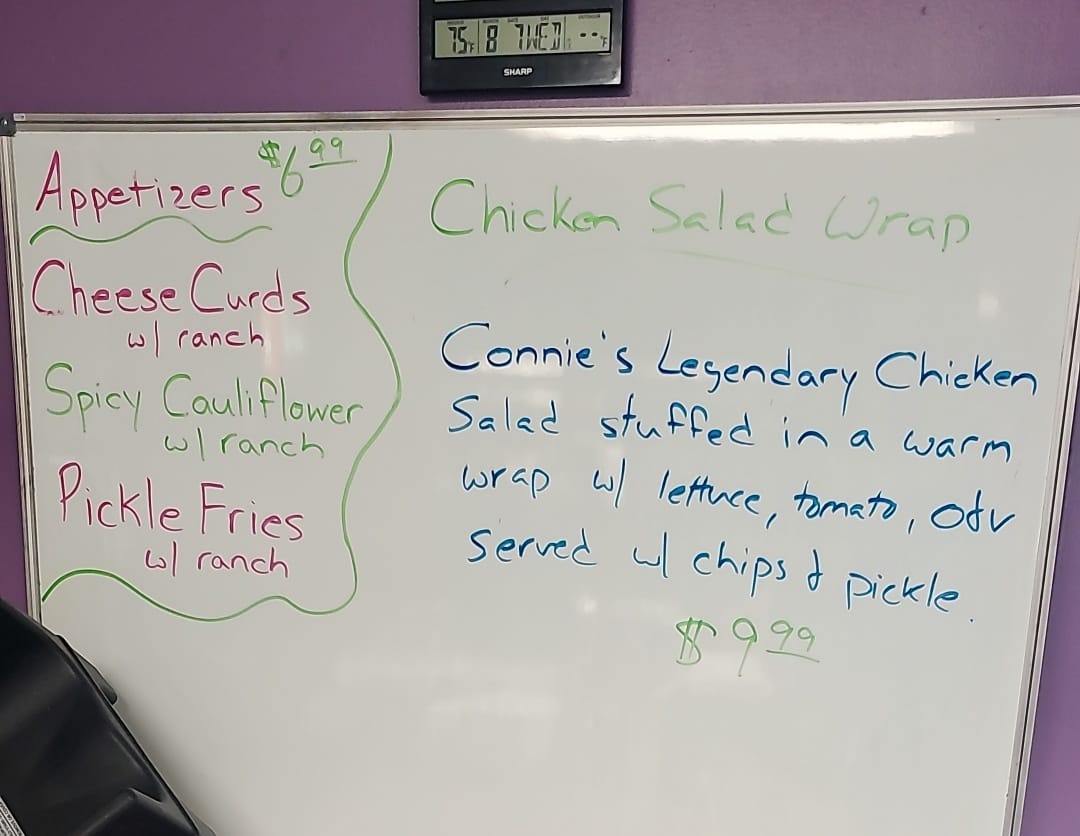 75°F 8 7 WED --°F
SHARP
Appetizers $6.99
Cheese Curds
w/ ranch
Spicy Cauliflower
w/ ranch
Pickle Fries
w/ ranch
Chicken Salad Wrap
Connie's Legendary Chicken
Salad stuffed in a warm
wrap w/ lettuce, tomato,
Served w/ chips & pickle.
$9.99